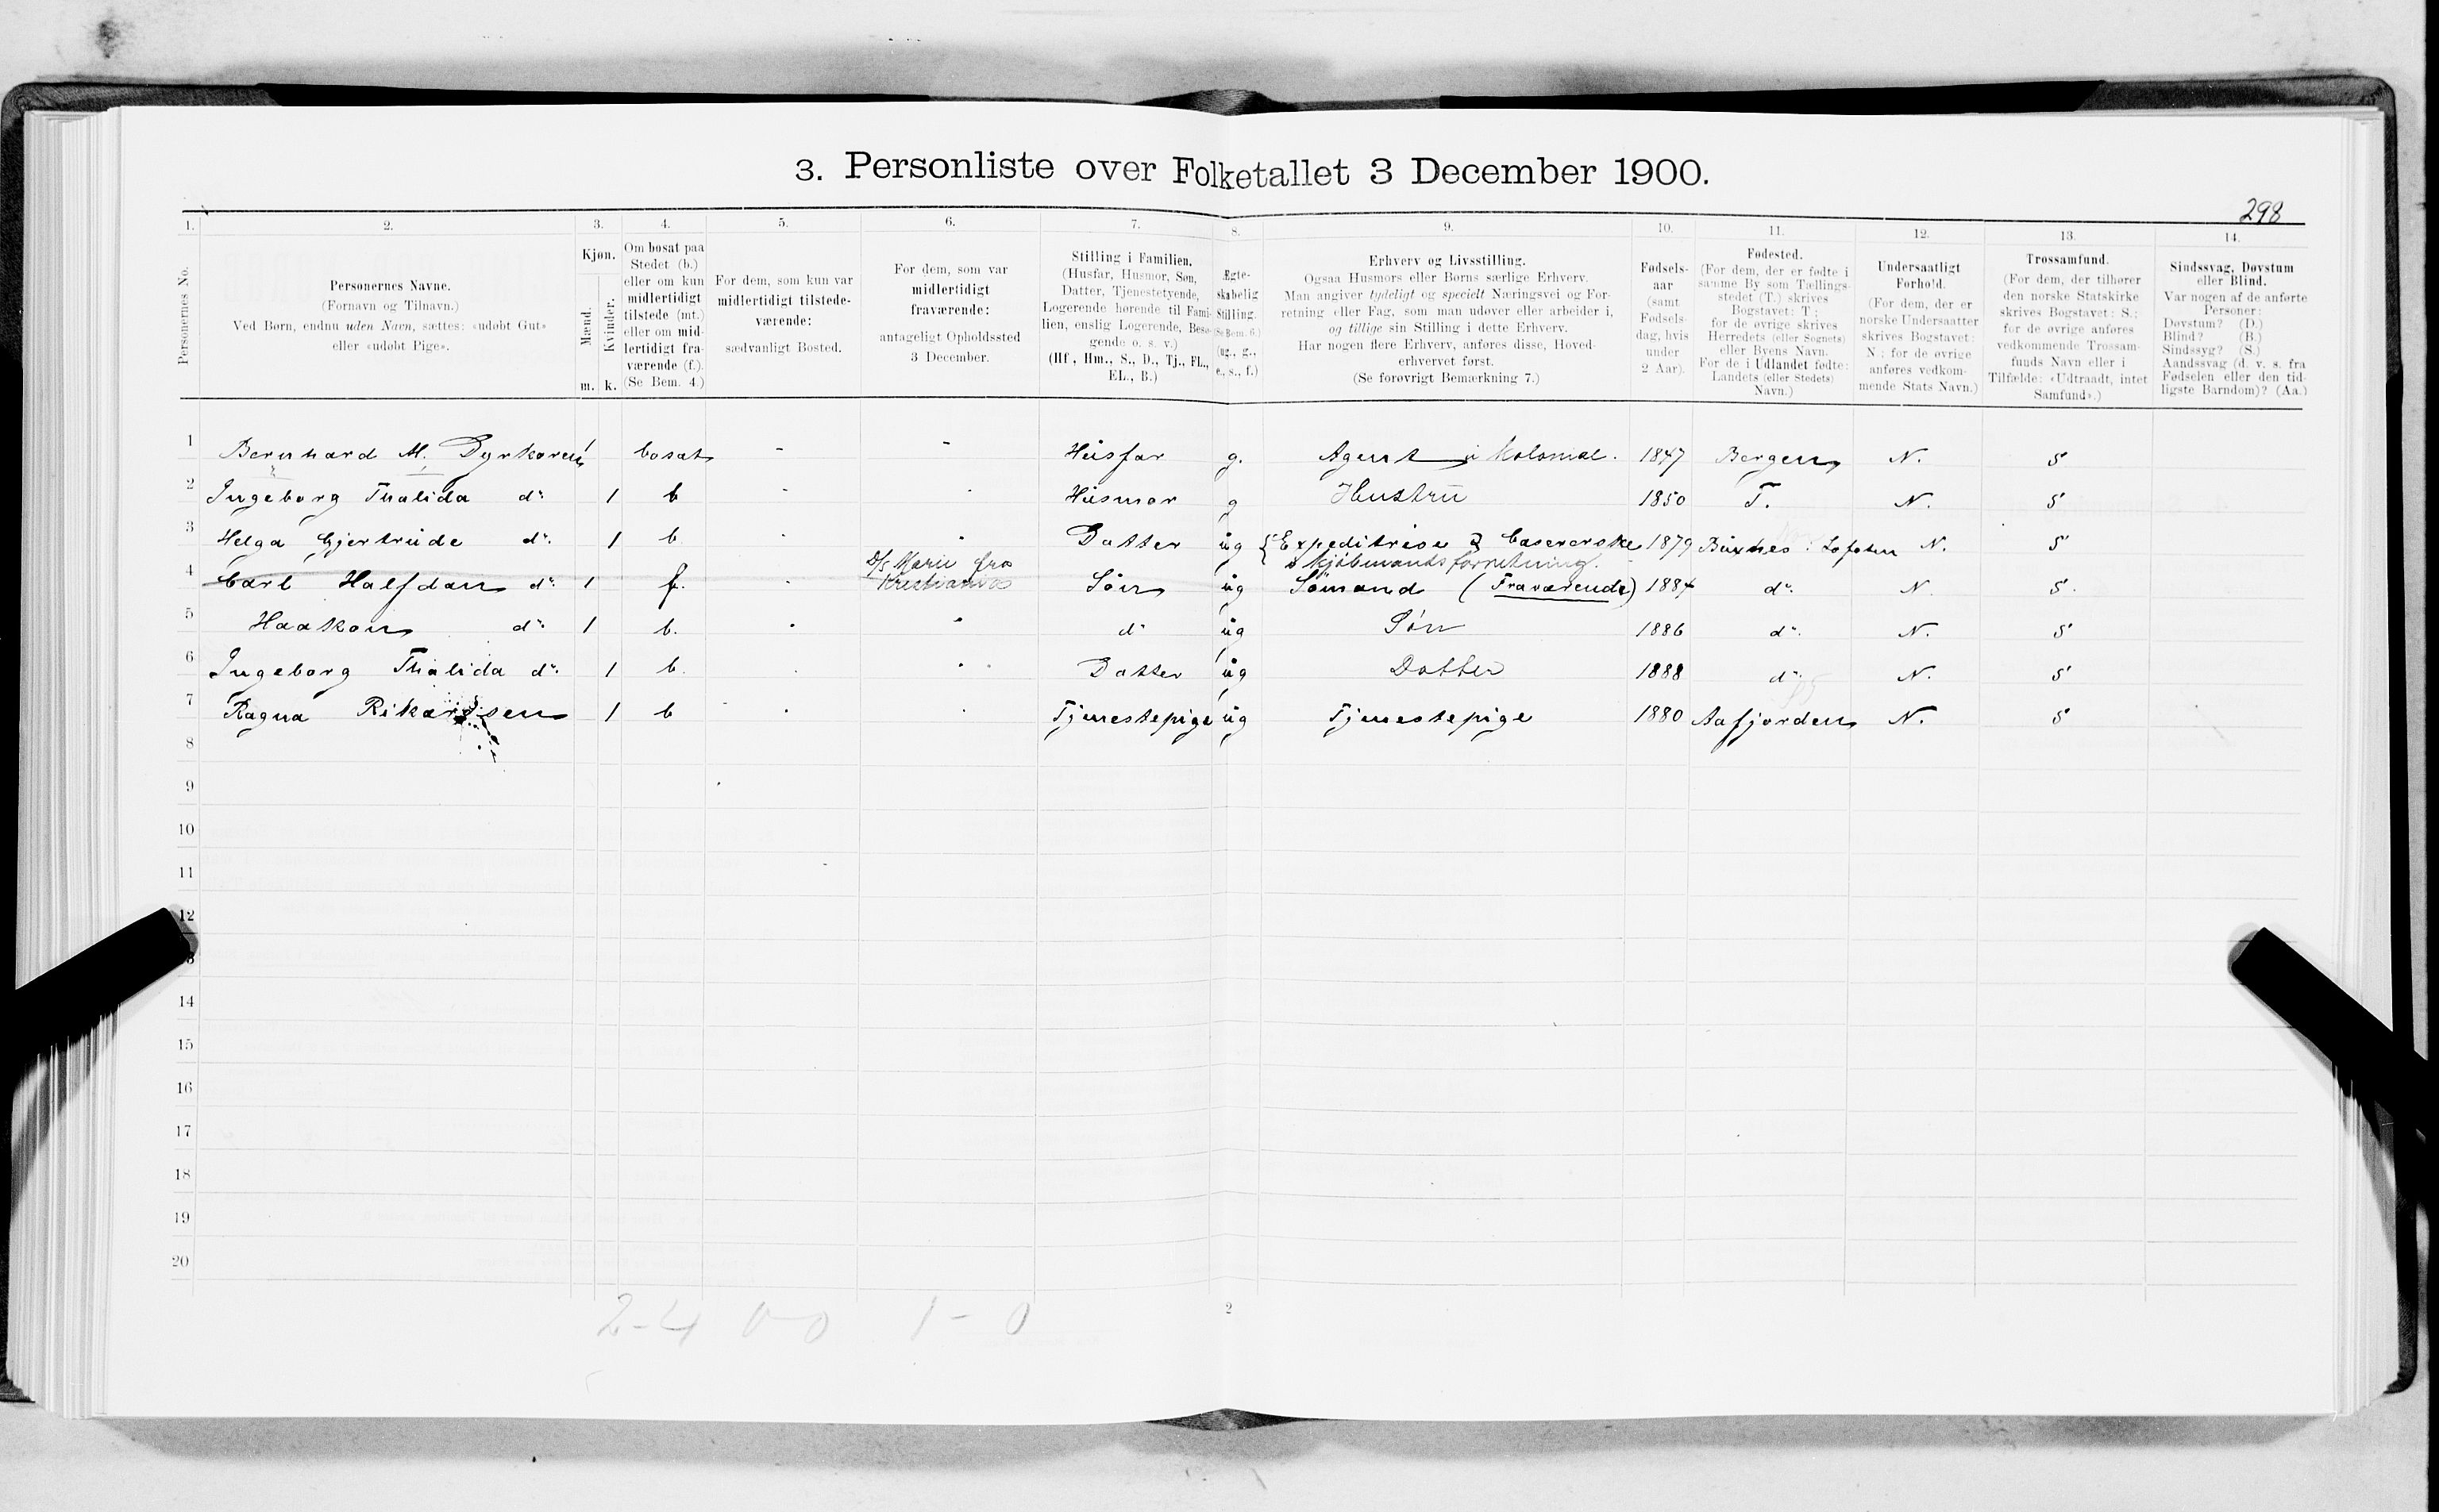 3. Personliste over Folketallet 3 December 1900.
298
1. 2. 3. 4. 5. 6. 7. 8. 9. 10. 11. 12. 13. 14.
Personernes No.
Personernes Navne.
(Fornavn og Tilnavn.)
Ved Børn, endnu uden Navn, sættes: «udøbt Gut»
eller «udøbt Pige».
Kjøn.
Mænd.
Kvinder.
m. k.
Om bosat paa
Stedet (b.)
eller om kun
midlertidigt
tilstede (mt.)
eller om mid-
lertidigt fra-
værende (f.).
(Se Bem. 4.)
For dem, som kun var
midlertidigt tilstede-
værende:
sædvanligt Bosted.
For dem, som var
midlertidigt
fraværende:
antageligt Opholdssted
3 December.
Stilling i Familien.
(Husfar, Husmor, Søn,
Datter, Tjenestetyende,
Logerende hørende til Fami-
lien, enslig Logerende, Besø-
gende o. s. v.)
(Hf., Hm., S., D., Tj., FL.,
EL., B.)
Ægte-
skabelig
Stilling.
(Se Bem. 6.)
(ug., g.,
e., s., f.)
Erhverv og Livsstilling.
Ogsaa Husmors eller Børns særlige Erhverv.
Man angiver tydeligt og specielt Næringsvei og For-
retning eller Fag, som man udøver eller arbeider i,
og tillige sin Stilling i dette Erhverv.
Har nogen flere Erhverv, anføres disse, Hoved-
erhvervet først.
(Se forøvrigt Bemærkning 7.)
Fødsels-
aar
(samt
Fødsels-
dag, hvis
under
2 Aar).
Fødested.
(For dem, der er fødte i
samme By som Tællings-
stedet (T.) skrives
Bogstavet: T;
for de øvrige skrives
Herredets (eller Sognets)
eller Byens Navn.
For de i Udlandet fødte:
Landets (eller Stedets)
Navn.)
Undersaatligt
Forhold.
(For dem, der er
norske Undersaatter
skrives Bogstavet:
N.; for de øvrige
anføres vedkom-
mende Stats Navn.)
Trossamfund.
(For dem, der tilhører
den norske Statskirke
skrives Bogstavet: S.;
for de øvrige anføres
vedkommende Trossam-
funds Navn eller i
Tilfælde: «Udtraadt, intet
Samfund».)
Sindssvag, Døvstum
eller Blind.
Var nogen af de anførte
Personer:
Døvstum? (D.)
Blind? (B.)
Sindssyg? (S.)
Aandssvag (d. v. s. fra
Fødselen eller den tid-
ligste Barndom)? (Aa.)
1 Bernhard M. Dyrkoren 1 bosat - - Husfar g. Agent i Kolonial. 1847 Bergen N. S
2 Ingeborg Thalida do. 1 b - - Husmor g Hustru 1850 T. N. S
3 Helga Gjertrude do. 1 b - - Datter ug Expeditrise & Casererske 1879 Buxnes Lofoten N. S
i Kjøbmandsforretning.
D/s Marie fra
4 Carl Halfdan do. 1 f. - Kristiania Søn ug Sømand (Fraværende) 1884 do. N. S.
5 Haakon do. 1 b. - - do ug Søn 1886 do. N. S
6 Ingeborg Thalida do. 1 b. - - Datter ug Datter 1888 do. N. S
7 Ragna Rikardsen 1 b - - Tjenestepige ug Tjenestepige 1880 Aafjorden N. S
8
9
10
11
12
3
14
15
16
17
18
19
20
2-4 0-0 1-0
2